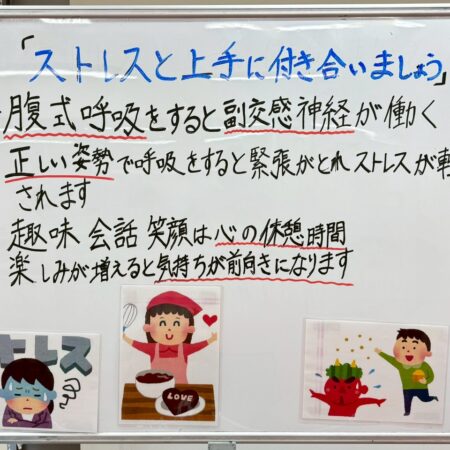 「ストレスと上手に付き合いましょう」
腹式呼吸をすると副交感神経が働く
正しい姿勢で呼吸をすると緊張がとれストレスが軽
されます
趣味 会話 笑顔は心の休憩時間
楽しみが増えると気持ちが前向きになります
トレス
LOVE